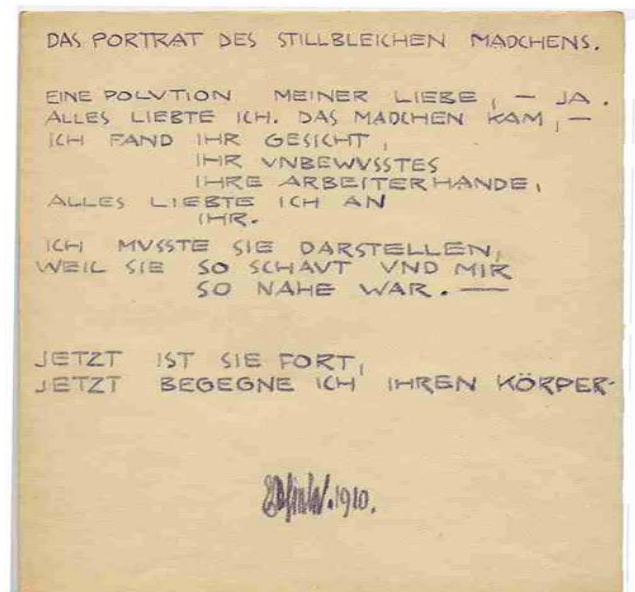 DAS PORTRAT DES STILLBLEICHEN MADCHENS.
EINE POLVTION MEINER LIEBE, — JA.
ALLES LIEBTE ICH. DAS MADCHEN KAM, —
ICH FAND IHR GESICHT,
IHR VNBEWVSSTES
IHRE ARBEITERHANDE,
ALLES LIEBTE ICH AN
IHR.
ICH MVSSTE SIE DARSTELLEN,
WEIL SIE SO SCHAVT VND MIR
SO NAHE WAR. —
JETZT IST SIE FORT,
JETZT BEGEGNE ICH IHREN KÖRPER-
1910.